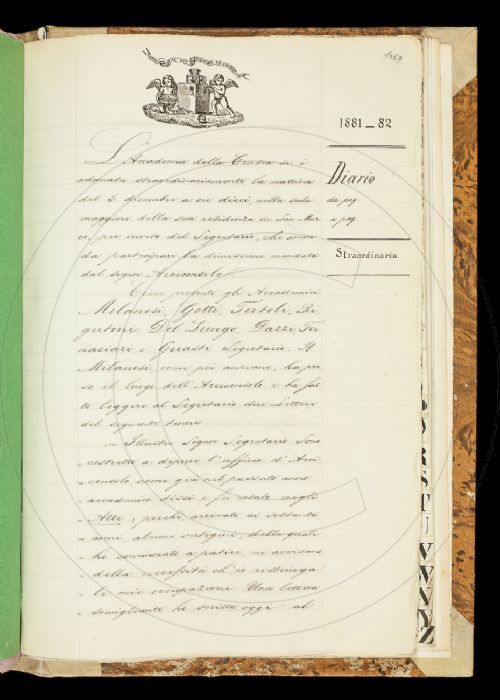 1881_82
Diario
da pag
a pag
Straordinaria
L'Accademia della Crusca si è
adunata straordinariamente la mattina
del 3 dicembre a ore dieci nella sala
maggiore della sua residenza in San Mar
co, per invito del Segretario, che aveva
da partecipare la dimissione mandata
dal signor Arciconsolo.
Erano presenti gli Accademici
Milanesi, Gotti, Tortoli, Ri
gutini, Del Lungo, Dazzi, Tor
naciari, e Guasti Segretario. Il
Milanesi, come più anziano, ha pre
so il luogo dell'Arciconsolo e ha fat
to leggere al Segretario due Lettere
del seguente tenore.
" Illustre Signor Segretario. Sono
" costretto a deporre l'ufficio d'Arci
" consolo come già nel passato anno
" accademico dissi e fu notato negli
" Atti; perchè arrivato ai sessanta
" anni, alcune vertigini, dalle quali
" ho cominciato a patire, mi avvisano
" della necessità ch'io ristringa
" le mie occupazioni. Una lettera
" somigliante ho scritta oggi al
R
S
T
U
V
W
X
Y
Z